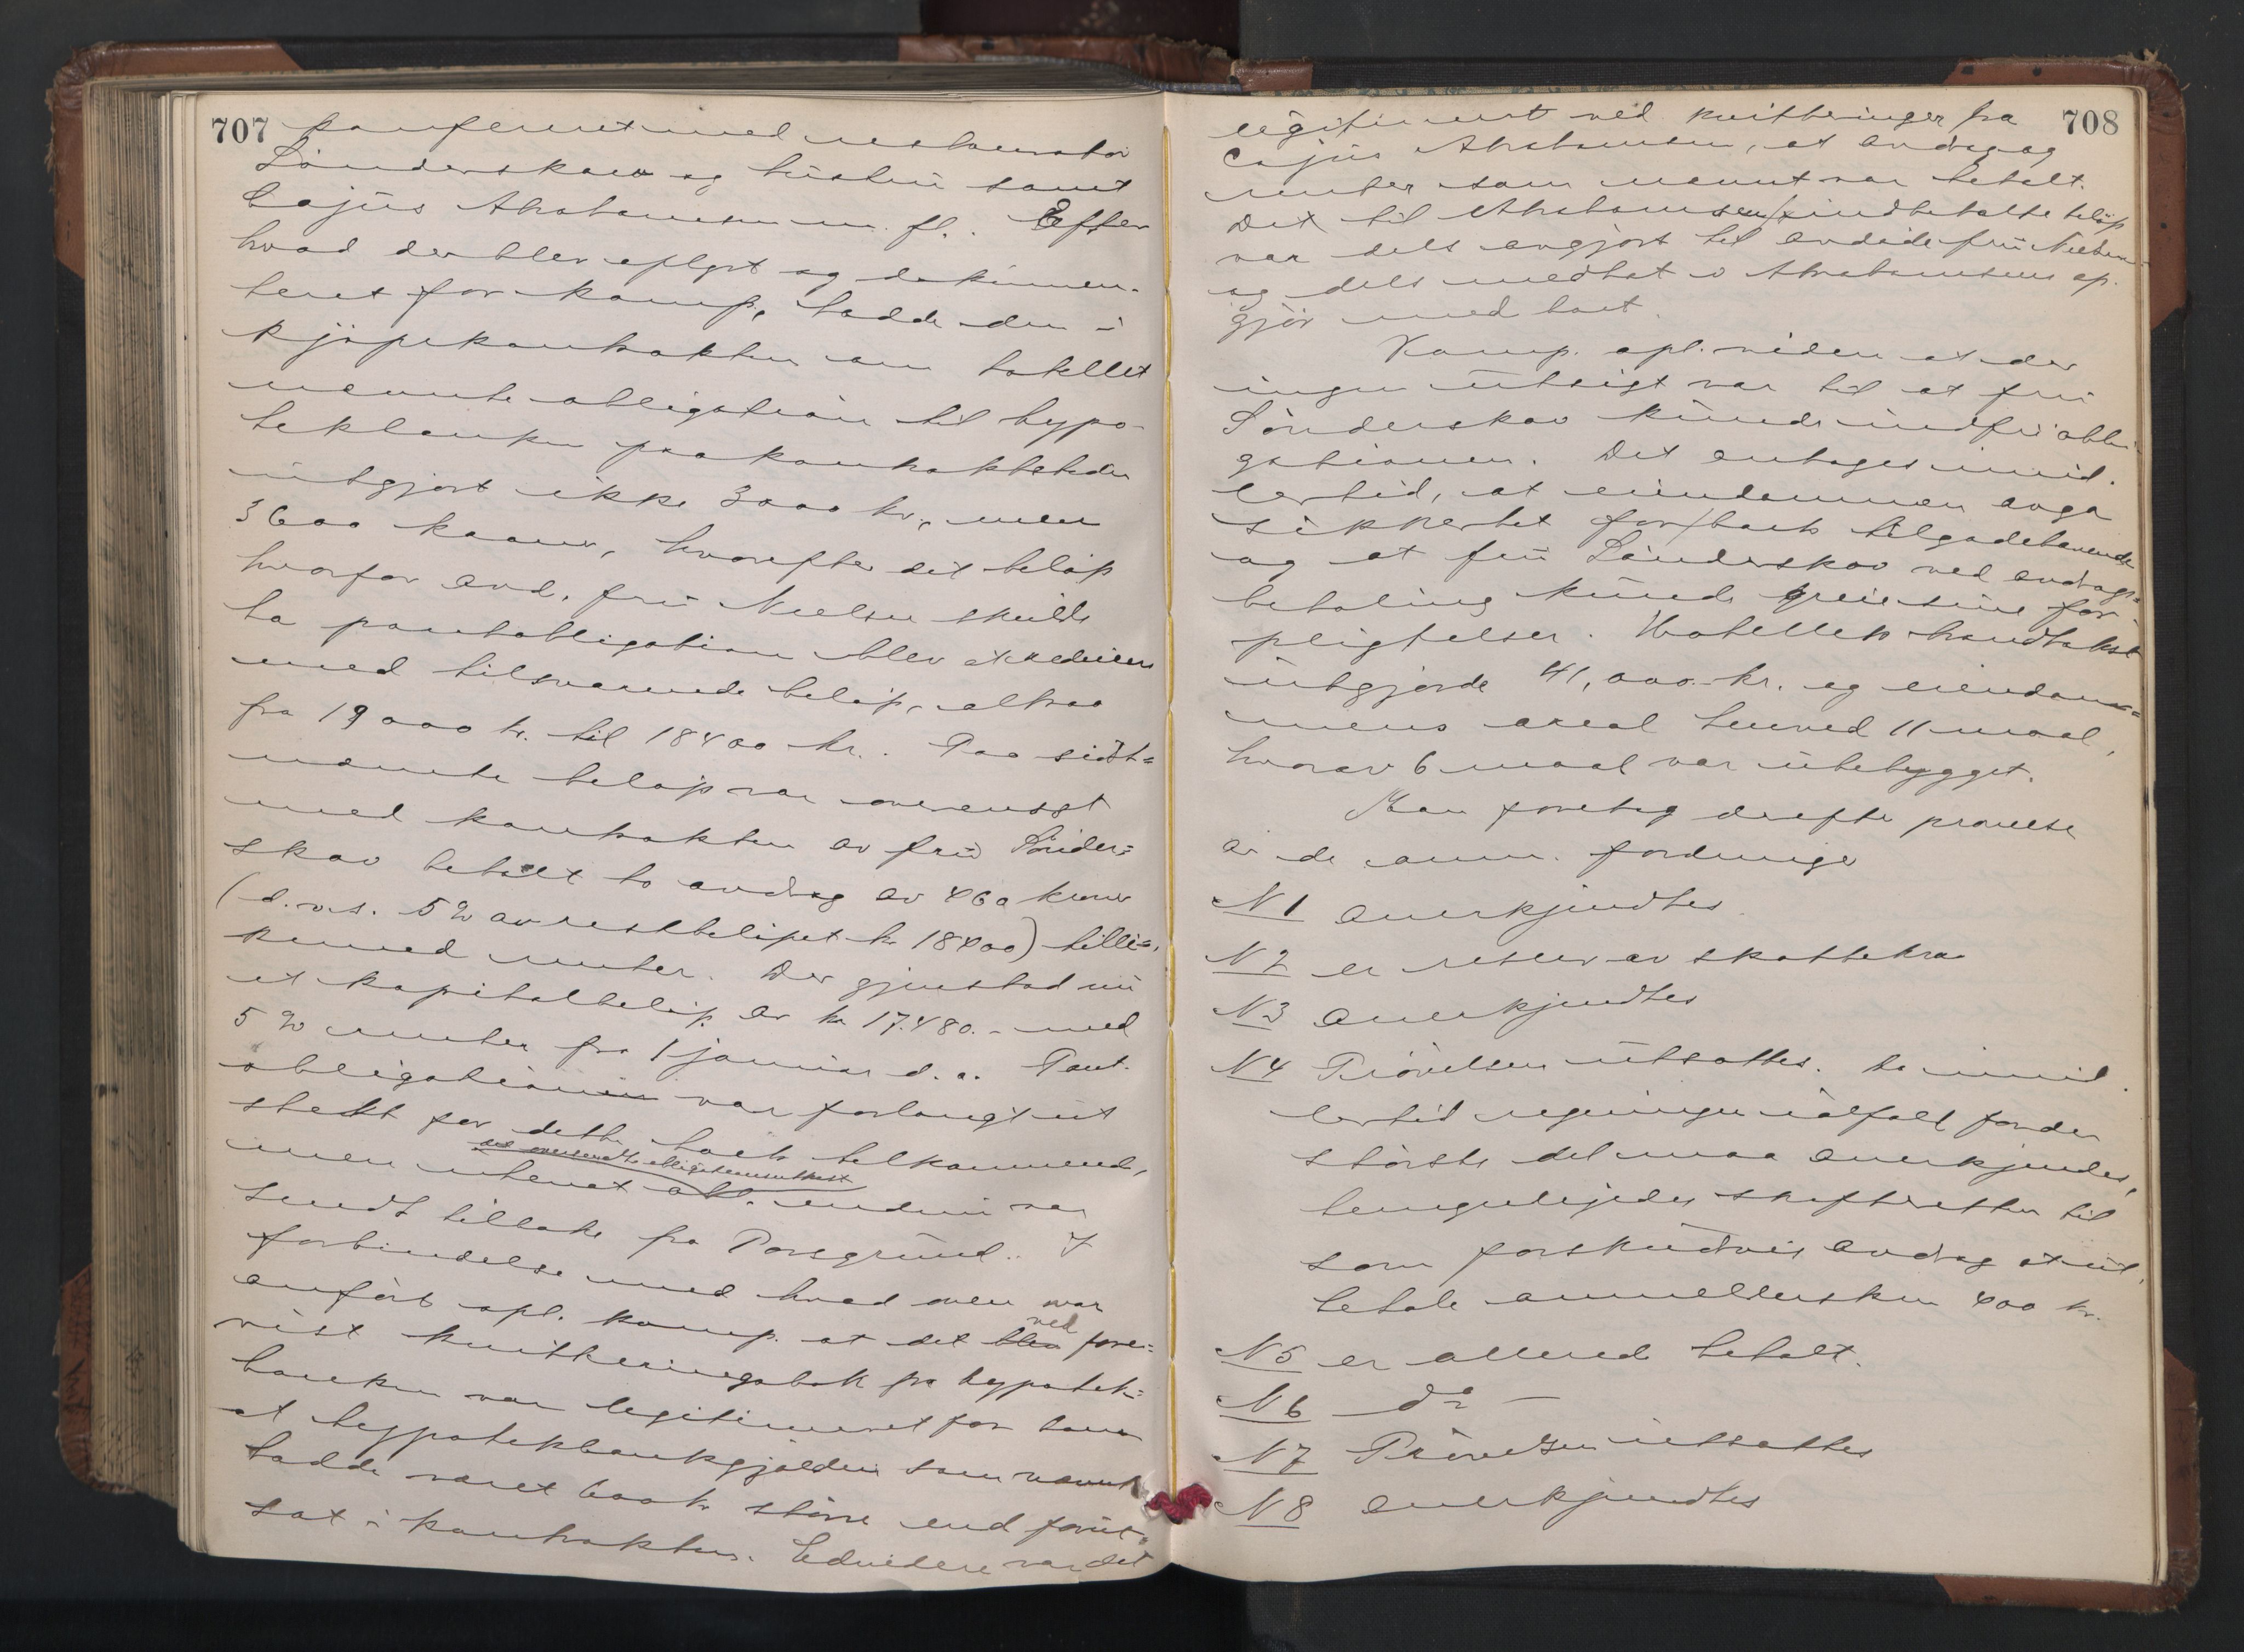 707
konferert med restauratør
Sønderskov og hustru samt
Cajus Abrahamsen m. fl. Efter
hvad der blev oplyst og dokumen-
tert for komp. hadde den i
kjøpekontrakten om hotellet
nævnte obligation til hypo-
tekbanken paa kontraktstiden
utgjort ikke 3000 kr., men
3600 kroner, hvorefter det beløp
hvorfor avd. fru Nielsen skulde
ha pantobligation blev at reducere
med tilsvarende beløp, altsaa
fra 19000 kr. til 18400 kr. Paa sidst=
nævnte beløp var overensst
med kontrakten av fru Sønder=
skov betalt to avdrag av 460 kroner
(d.v.s. 5 % av restbeløpet kr 18400) tilli=
kemed renter. Der gjenstod nu
et kapitalbeløp av kr. 17.480.- med
5 % renter fra 1 januar d. a. Pant-
obligation var forlangt ut
stedt for dette boets tilkommende,
den oversendte obligationsutkast
men uhevet endnu var
sendt tilbake fra Porsgrund. I
forbindelse med hvad oven var
anført opl. komp. at det ved fore=
vist kvitteringsbok fra hypotek=
banken var legitimeret for ham
at hypotekbankgjælden som nævnt
hadde været 600 kr større end forut=
sat i kontrakten. Endvidere var det
708
legitimert ved kvitteringer fra
Cajus Abrahamsen, at avdrag og
renter som nævnt var betalt.
Det til Abrahamsen indbetalte beløp
var dels avgjort til avdøde fru Nielsen
og dels medtat i Abrahamsens op-
gjør med boet.
Komp. opl. videre at der
ingen utsigt var til at fru
Sønderskov kunde indfri obli-
gationen. Det antages imid-
lertid, at eiendommen avga
sikkerhet for boets tilgodehavende
og at fru Sønderskov ved avdrags=
betaling kunde greie sine for-
pligtelser. Hotellets brandtakst
utgjorde 41,000.- kr. og eiendom=
mens areal henved 11 maal,
hvorav 6 maal var ubebygget.
Man foretog derefter prøvelse
av de anm. fordringer
N 1 anerkjendtes
N 2 er
av skattekrav
N 3 anerkjendtes
N 4 Prøvelsen utsattes. Da imid-
lertid regningen ialfald for den
største del maa anerkjendes,
skifteretten til
som forskudsvis avdrag at ut-
betale anmeldersken 400 kr.
N 5 er allerede betalt.
N 6 do —
N 7 Prøvelsen utsattes
N 8 anerkjendtes